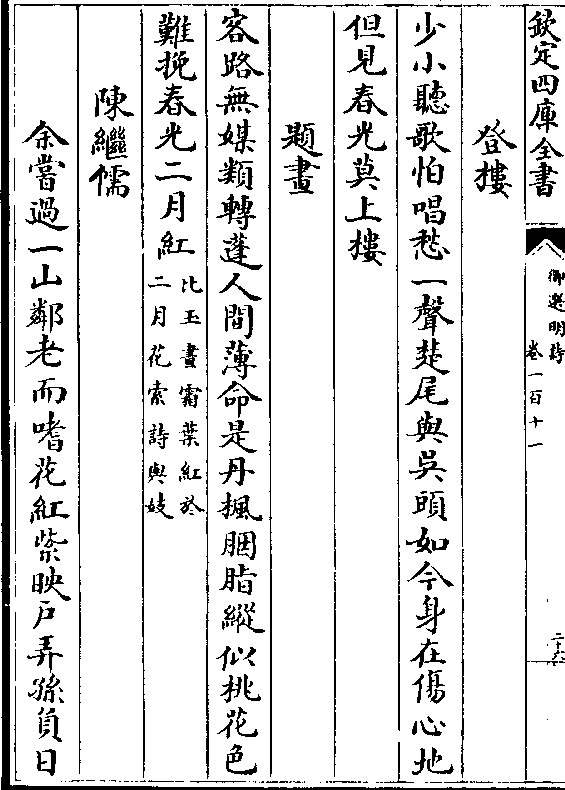 欽定四庫全書
御選明詩
卷一百十一
二十六
登樓
少小聽歌怕唱愁一聲楚尾與吳頭如今身在傷心地
但見春光莫上樓
題畫
客路無媒類轉蓬人間薄命是丹楓胭脂縱似桃花色
難挽春光二月紅
比玉畫霜葉紅於
二月花索詩與妓
陳繼儒
余嘗過一山鄰老而嗜花紅紫映戶弄孫負日